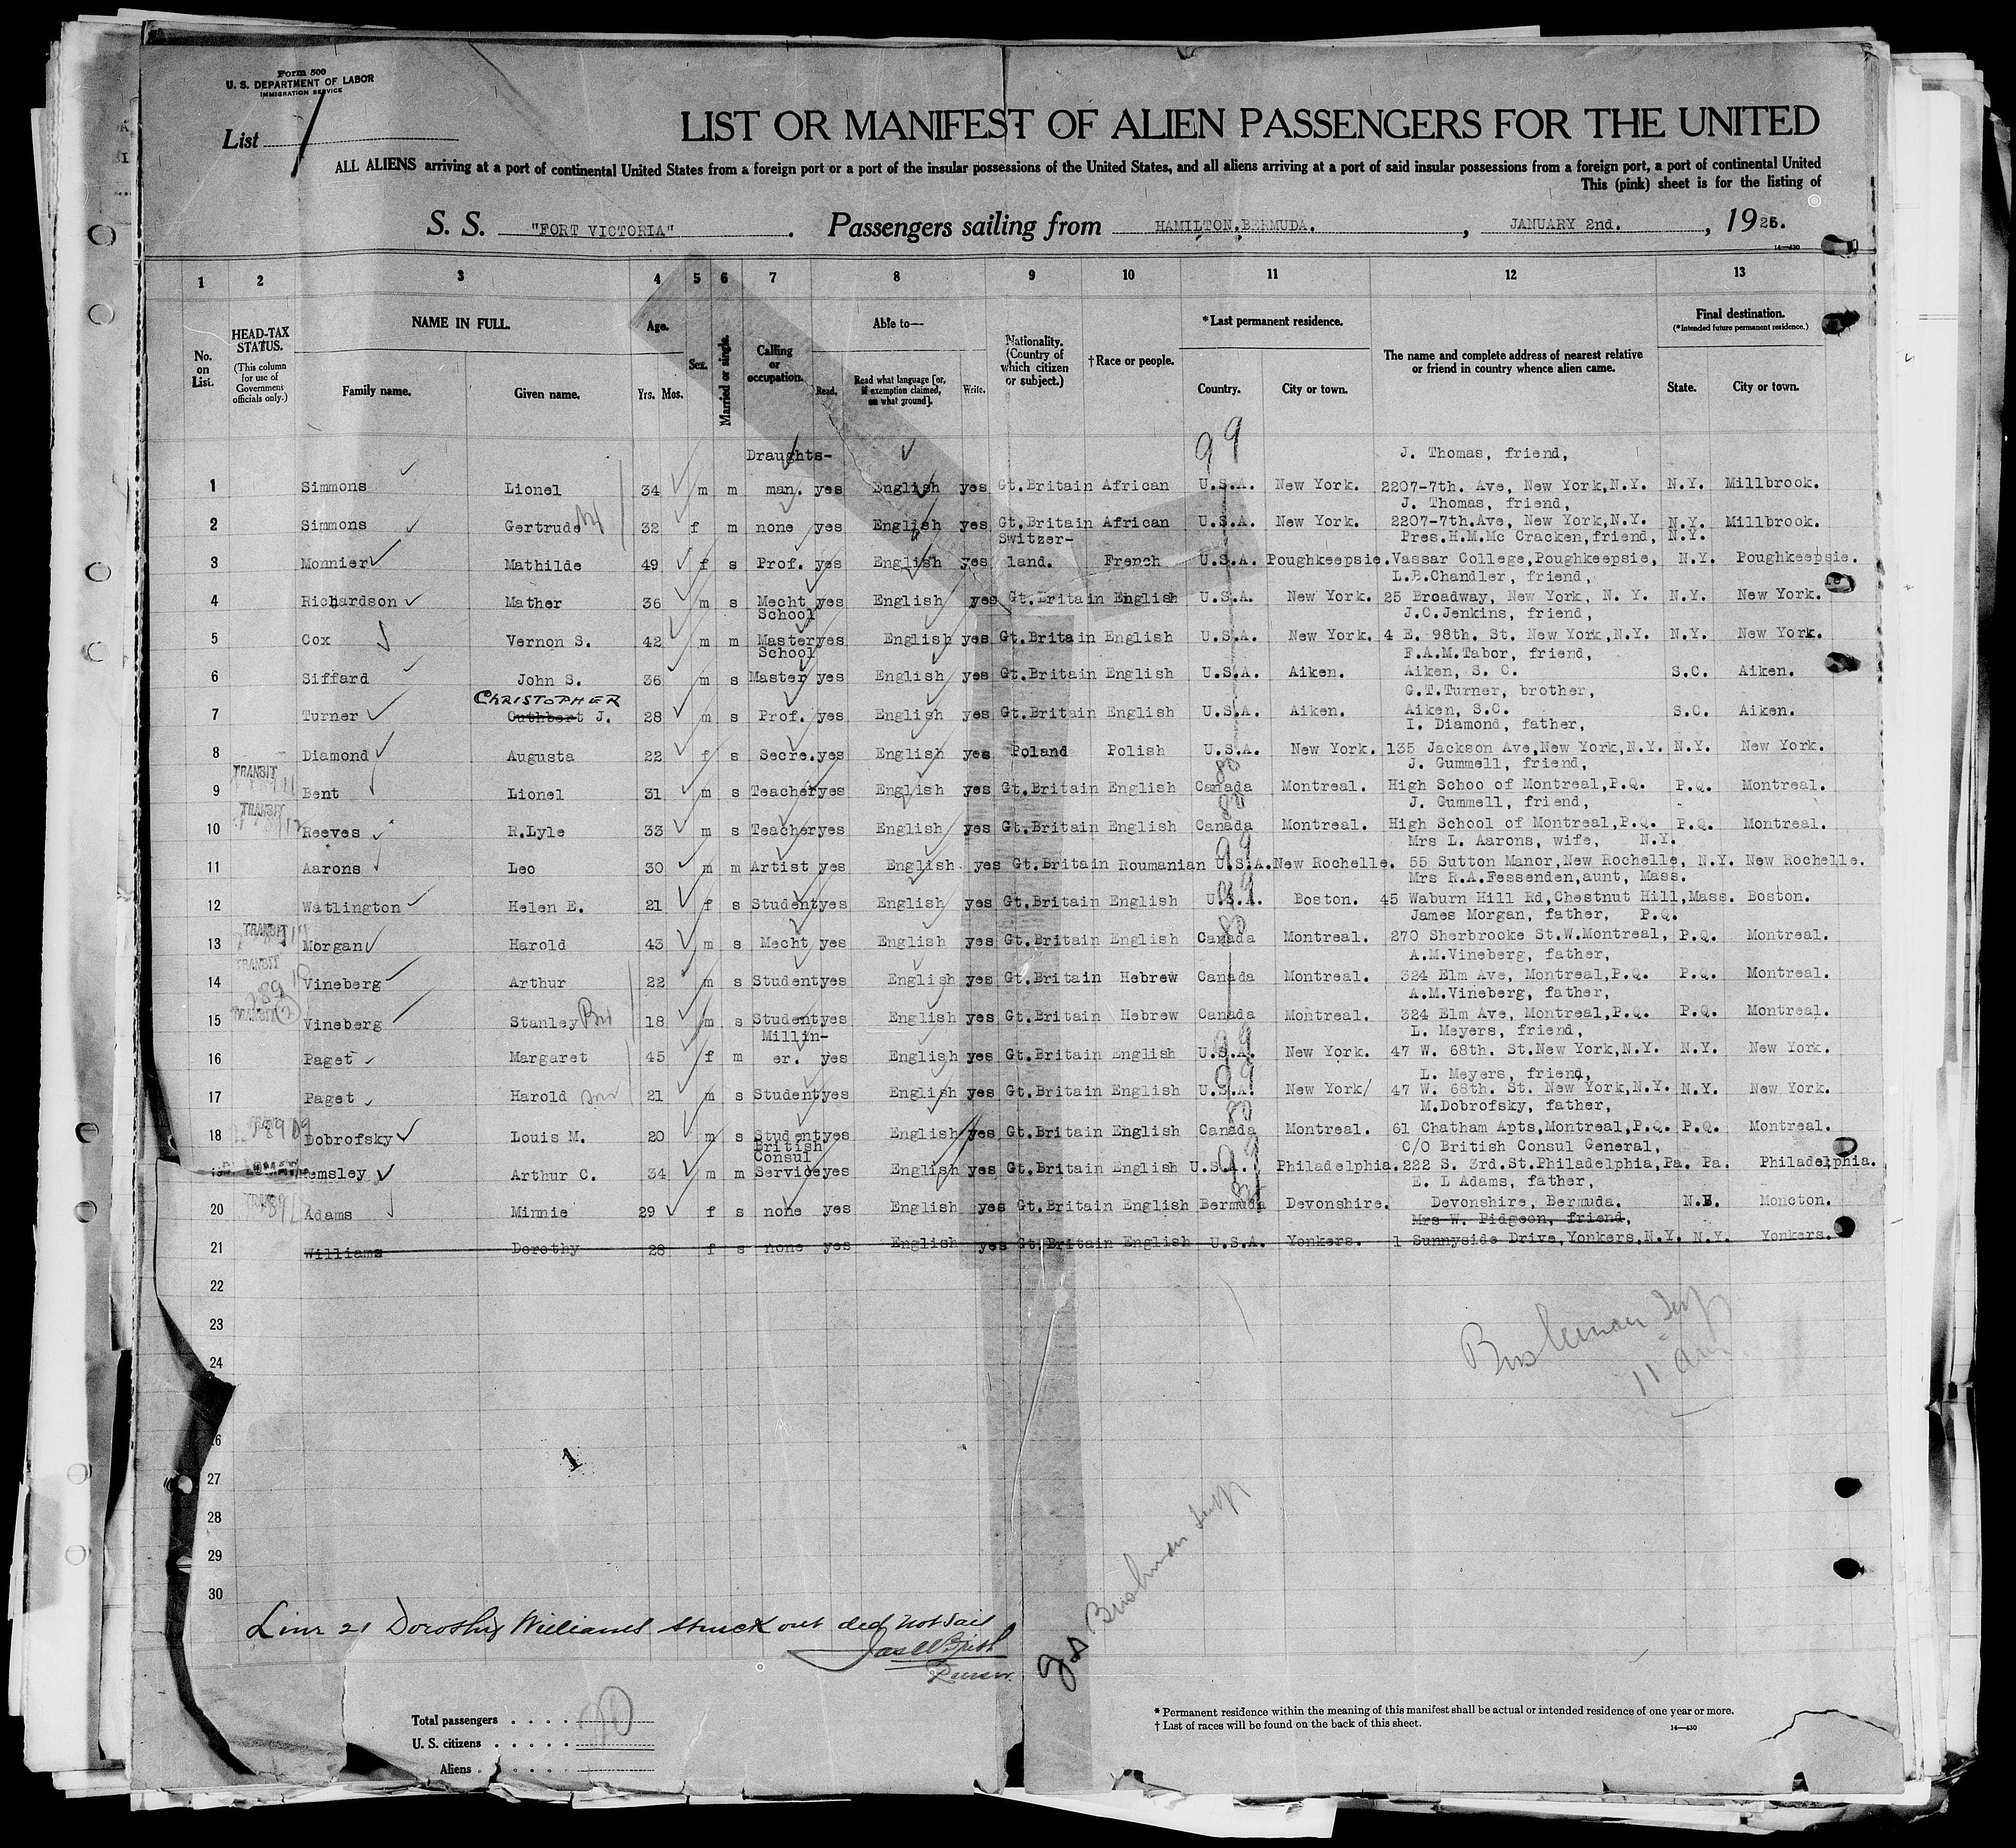 Form 500
U. S. DEPARTMENT OF LABOR
IMMIGRATION SERVICE
List
LIST OR MANIFEST OF ALIEN PASSENGERS FOR THE UNITED
ALL ALIENS arriving at a port of continental United States from a foreign port or a port of the insular possessions of the United States, and all aliens arriving at a port of said insular possessions from a foreign port, a port of continental United
This (pink) sheet is for the listing of
S. S. "FORT VICTORIA" . Passengers sailing from HAMILTON.BERMUDA. , JANUARY 2nd. , 1926.
14—430
1 2 3 4 5 6 7 8 9 10 11 12 13
No. on List.
HEAD-TAX STATUS.
(This column for use of Government officials only.)
NAME IN FULL.
Family name. Given name.
Age.
Yrs. Mos.
Sex.
Married or single.
Calling or occupation.
Able to—
Read. Read what language [or, if exemption claimed, on what ground]. Write.
Nationality. (Country of which citizen or subject.)
†Race or people.
*Last permanent residence.
Country. City or town.
The name and complete address of nearest relative or friend in country whence alien came.
Final destination.
(*Intended future permanent residence.)
State. City or town.
Draughts- 99 J. Thomas, friend,
1 Simmons Lionel 34 m m man. yes English yes Gt.Britain African U.S.A. New York. 2207-7th. Ave, New York,N.Y. N.Y. Millbrook.
J. Thomas, friend,
2 Simmons Gertrude 32 f m none yes English yes Gt.Britain African U.S.A. New York. 2207-7th.Ave, New York,N.Y. N.Y. Millbrook.
Switzer- Pres.H.M.Mc Cracken,friend, N.Y.
3 Monnier Mathilde 49 f s Prof. yes English yes land. French U.S.A. Poughkeepsie. Vassar College,Poughkeepsie, N.Y. Poughkeepsie.
L.B.Chandler, friend,
4 Richardson Mather 36 m s Mecht yes English yes Gt.Britain English U.S.A. New York. 25 Broadway, New York, N. Y. N.Y. New York.
School J.C.Jenkins, friend,
5 Cox Vernon S. 42 m m Master yes English yes Gt.Britain English U.S.A. New York. 4 E. 98th. St. New York,N.Y. N.Y. New York.
School F.A.M.Tabor, friend,
6 Siffard John S. 36 m s Master yes English yes Gt.Britain English U.S.A. Aiken. Aiken, S. C. S.C. Aiken.
CHRISTOPHER G.T.Turner, brother,
7 Turner Cuthbert J. 28 m s Prof. yes English yes Gt.Britain English U.S.A. Aiken. Aiken, S.C. S.C. Aiken.
I. Diamond, father,
8 Diamond Augusta 22 f s Secre. yes English yes Poland Polish U.S.A. New York. 135 Jackson Ave,New York,N.Y. N.Y. New York.
TRANSIT 80 J. Gummell, friend,
9 Bent Lionel 31 m s Teacher yes English yes Gt.Britain English Canada Montreal. High Schoo of Montreal,P.Q. P.Q. Montreal.
TRANSIT 80 J. Gummell, friend,
10 Reeves R.Lyle 33 m s Teacher yes English yes Gt.Britain English Canada Montreal. High School of Montreal,P.Q. P.Q. Montreal.
99 Mrs L. Aarons, wife, N.Y.
11 Aarons Leo 30 m m Artist yes English yes Gt.Britain Roumanian U.S.A. New Rochelle. 55 Sutton Manor,New Rochelle, N.Y. New Rochelle.
99 Mrs R.A.Fessenden,aunt, Mass.
12 Watlington Helen E. 21 f s Student yes English yes Gt.Britain English U.S.A. Boston. 45 Waburn Hill Rd,Chestnut Hill,Mass. Boston.
TRANSIT 80 James Morgan, father, P.Q.
13 Morgan Harold 43 m s Mecht yes English yes Gt.Britain English Canada Montreal. 270 Sherbrooke St.W.Montreal, P.Q. Montreal.
TRANSIT A.M.Vineberg, father,
14 Vineberg Arthur 22 m s Student yes English yes Gt.Britain Hebrew Canada Montreal. 324 Elm Ave, Montreal,P.Q. P.Q. Montreal.
TRANSIT 2 A.M.Vineberg, father,
15 Vineberg Stanley Bro 18 m s Student yes English yes Gt.Britain Hebrew Canada Montreal. 324 Elm Ave, Montreal,P.Q. P.Q. Montreal.
Millin- L. Meyers, friend,
16 Paget Margaret 45 f m er. yes English yes Gt.Britain English U.S.A. New York. 47 W. 68th. St.New York,N.Y. N.Y. New York.
99 L. Meyers, friend,
17 Paget Harold son 21 m s Student yes English yes Gt.Britain English U.S.A. New York/ 47 W. 68th. St. New York,N.Y. N.Y. New York.
80 M.Dobrofsky, father,
18 Dobrofsky Louis M. 20 m s Student yes English yes Gt.Britain English Canada Montreal. 61 Chatham Apts,Montreal,P.Q. P.Q. Montreal.
British Consul C/O British Consul General,
19 emsley Arthur C. 34 m m Service yes English yes Gt.Britain English U.S.A. Philadelphia. 222 S. 3rd.St.Philadelphia,Pa. Pa. Philadelphia.
E. L Adams, father,
20 Adams Minnie 29 f s none yes English yes Gt.Britain English Bermuda Devonshire. Devonshire, Bermuda. N.B. Moncton.
Mrs W. Pidgeon, friend,
21 Williams Dorothy 28 f s none yes English yes Gt.Britain English U.S.A. Yonkers. 1 Sunnyside Drive,Yonkers,N.Y. N.Y. Yonkers.
22
23
24
26
27
28
29
30
11 am
1
Line 21 Dorothy Williams struck out did not sail
Purser.
Total passengers . . . . 20
U. S. citizens . . . . .
Aliens . . . . .
* Permanent residence within the meaning of this manifest shall be actual or intended residence of one year or more.
† List of races will be found on the back of this sheet.
14—430